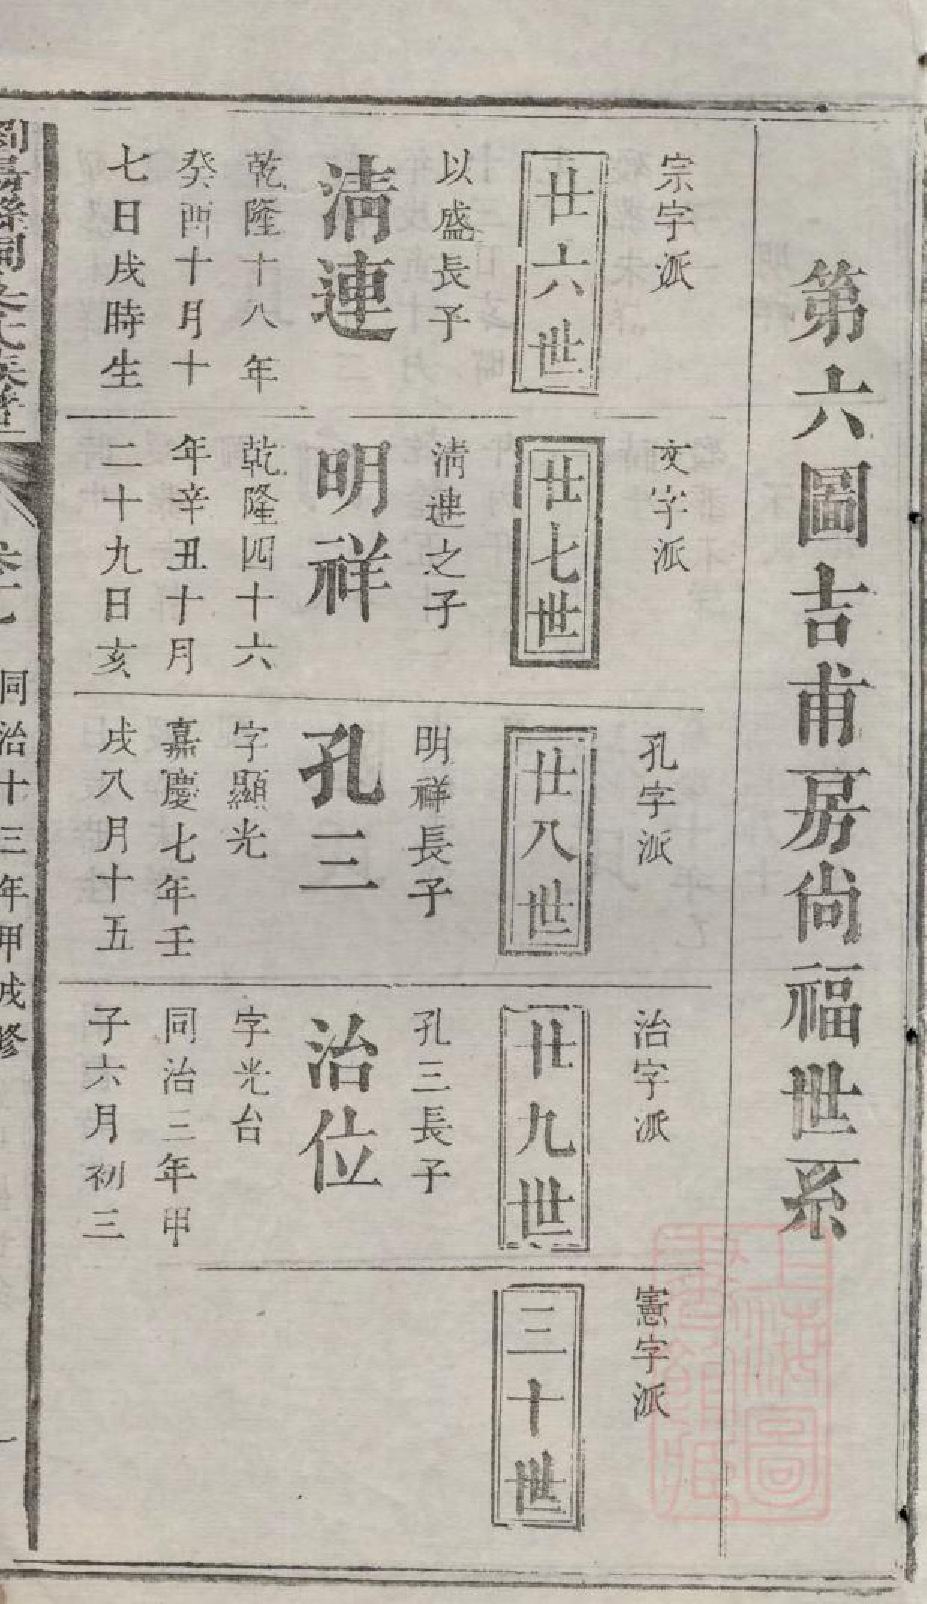 第六圖吉甫房尚福世系
宗字派
廿六世
以盛長子
淸連
乾隆十八年
癸酉十月十
七日戌時生
文字派
廿七世
淸連之子
明祥
乾隆四十六
年辛丑十月
二十九日亥
孔字派
廿八世
明祥長子
孔三
字顯光
嘉慶七年壬
戌八月十五
治字派
廿九世
孔三長子
治位
字光台
同治三年甲
子六月初三
憲字派
三十世
同治十三年甲戌修
上海圖書館藏